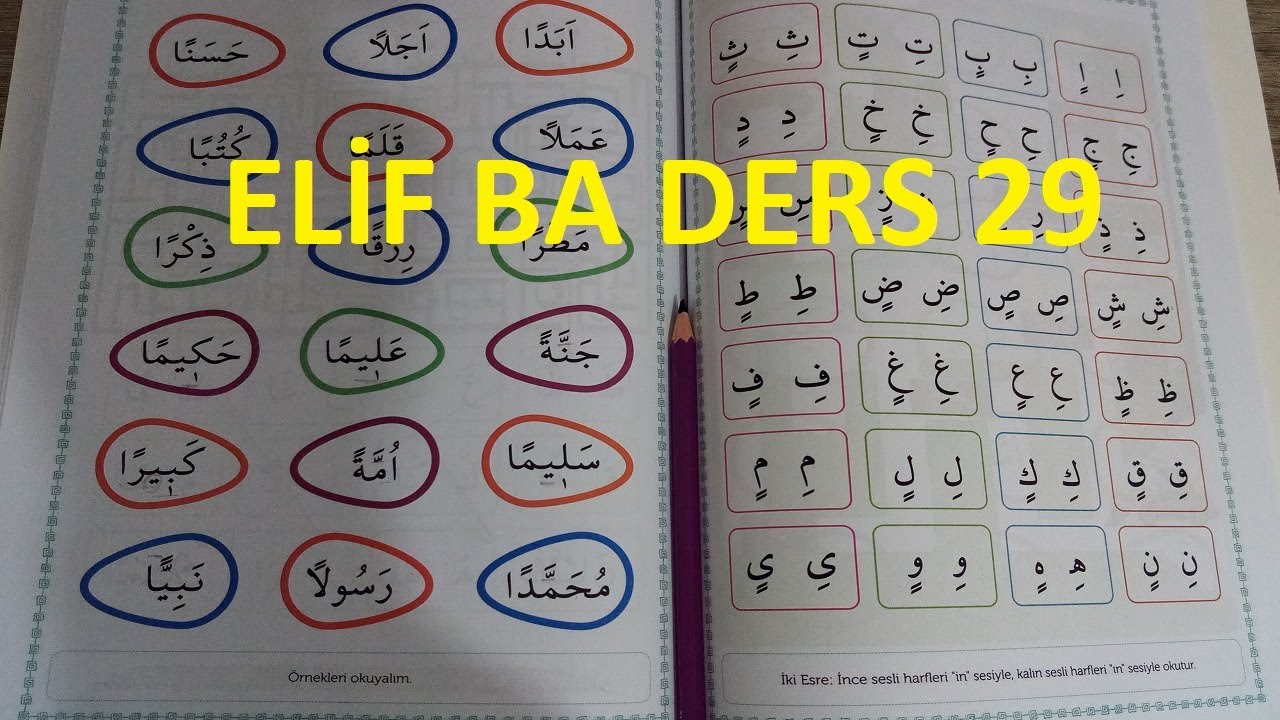 ELİF BA DERS 29
اِ اٍ بِ بٍ تِ تٍ ثِ ثٍ
جِ جٍ حِ حٍ خِ خٍ دِ دٍ
ذِ ذٍ رِ
شِ شٍ صِ صٍ ضِ ضٍ طِ طٍ
ظِ ظٍ عِ عٍ غِ غٍ فِ فٍ
قِ قٍ كِ كٍ لِ لٍ مِ مٍ
نِ نٍ هِ هٍ وِ وٍ يِ يٍ
İki Esre: İnce sesli harfleri "in" sesiyle, kalın sesli harfleri "ın" sesiyle okutur.
اَبَدًا اَجَلًا حَسَنًا
عَمَلًا قَلَمًا كُتُبًا
مَطَرًا رِزْقًا ذِكْرًا
جَنَّةً عَلِيمًا حَكِيمًا
سَلِيمًا اُمَّةً كَبِيرًا
مُحَمَّدًا رَسُولًا نَبِيًّا
Örnekleri okuyalım.